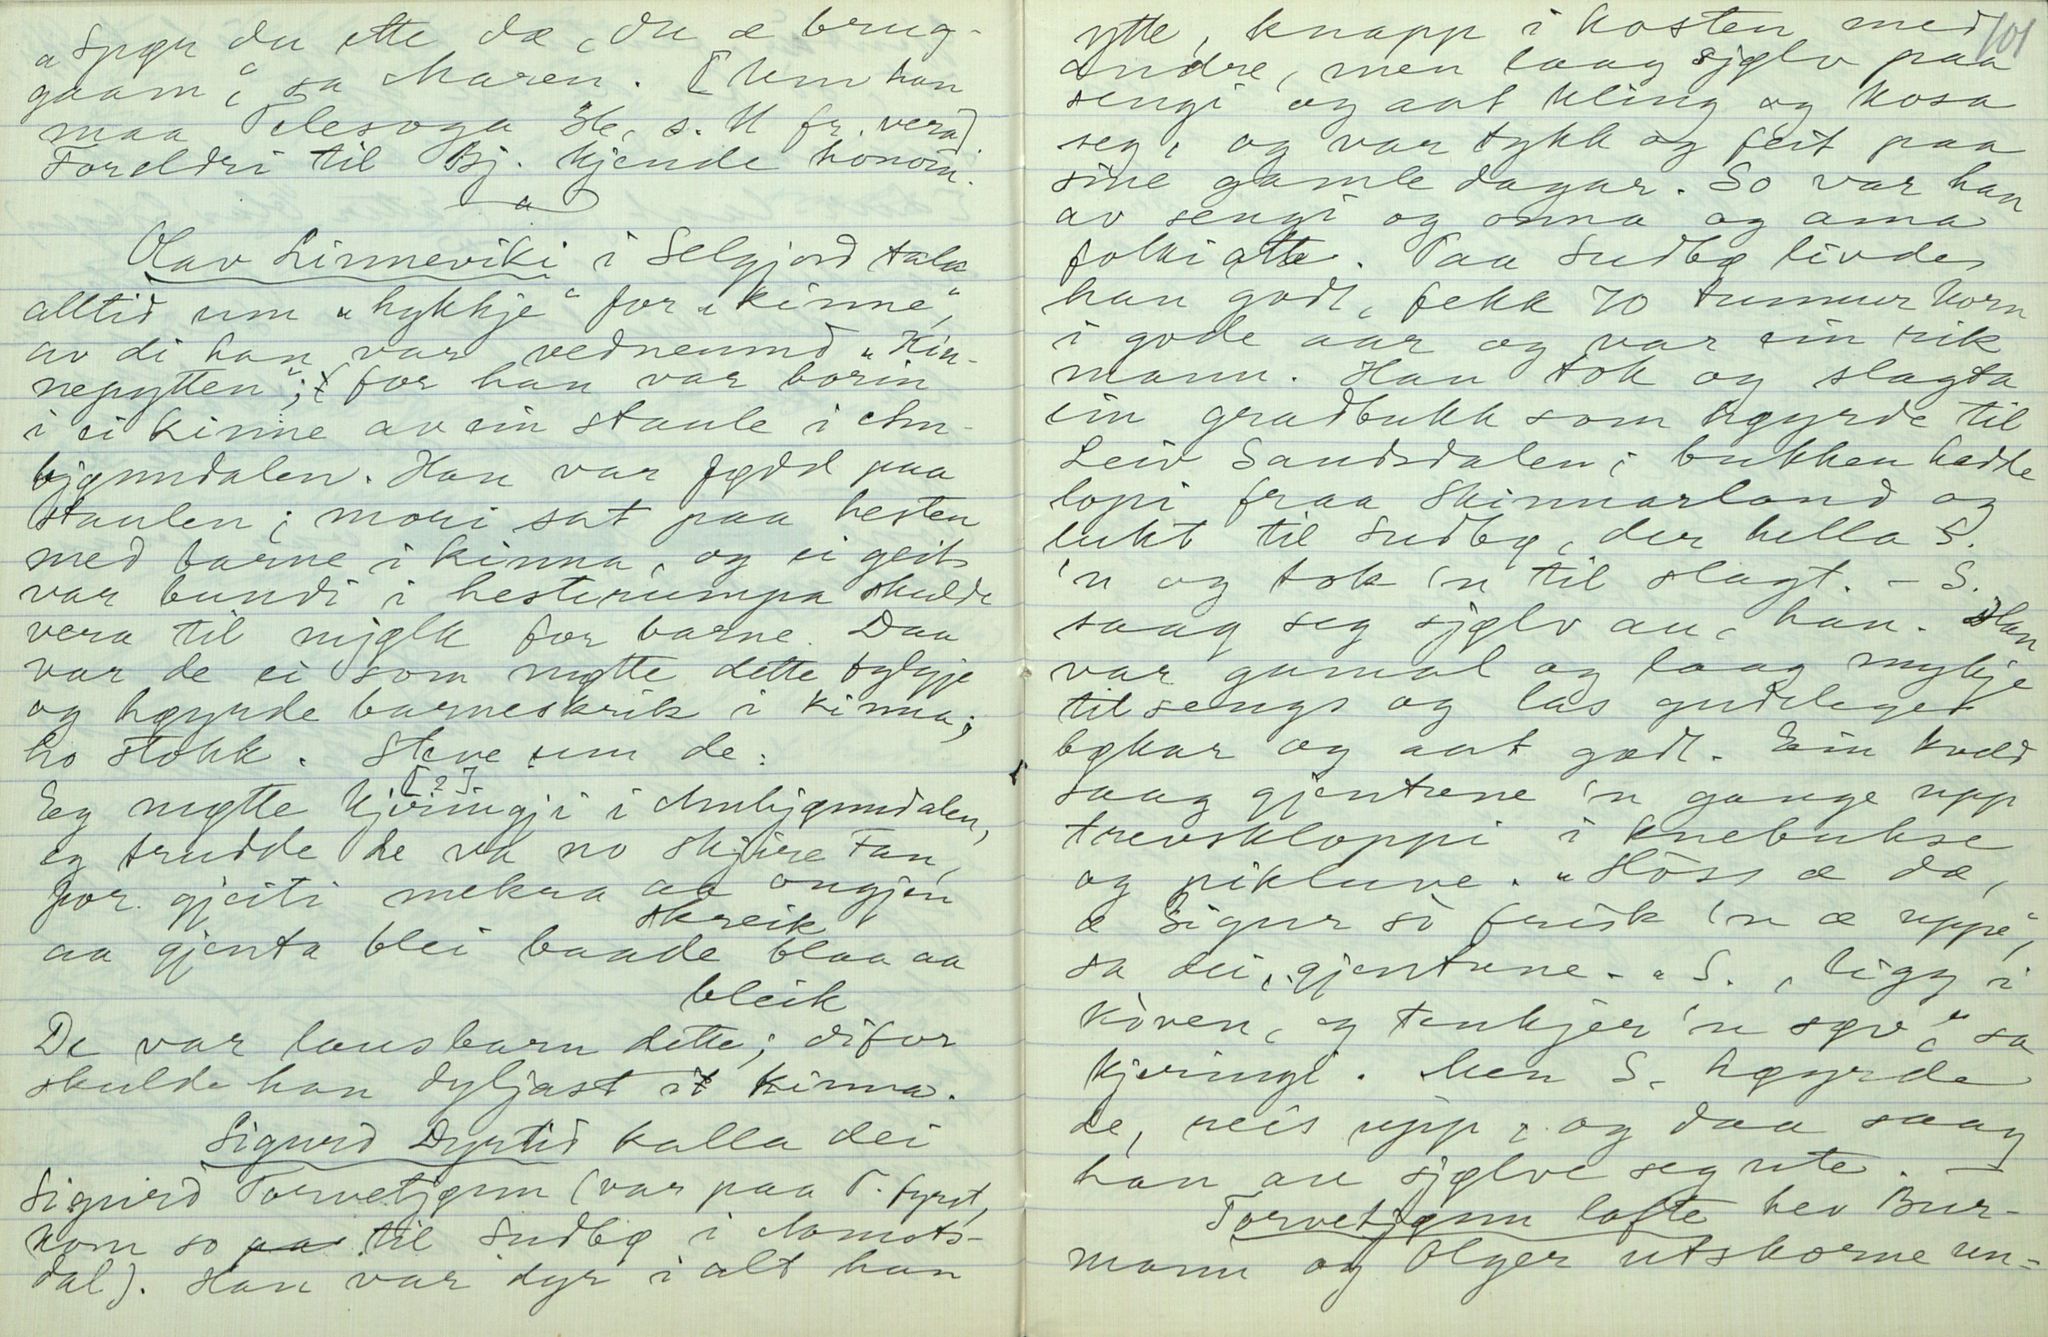 "Spør du ette dæ, du æ brug-
gaam", sa Maren. [Um han
maa Telesoga 36, s. 11 fr. vera]
Foreldri til Bj. kjende honom.
Olav Linneviki i Selgjord tala
alltid um "hykkje" for "kinne",
av di han var vednemnd "Kin-
nepytten"; for han var borin
i ei kinne av ein staule i Am-
bjønndalen. Han var fødd paa
staulen; mori sat paa hesten
med barne i kinna, og ei geit
var bundi i hesterumpa skulde
vera til mjølk for barne. Daa
var de ei som møtte dette fylgje
og høyrde barneskrik i kinna;
ho stokk. Steve um de:
[?]
Eg møtte kjeringji i Ambjønndalen,
eg trudde de va no skjire Fan,
for gjeiti mekra aa ongjen
skreik
aa gjenta blei baade blaa aa
bleik
De var lausbarn dette; difor
skulde han dyljast i kinna.
Sigurd Dyrtid kalla dei
Sigurd Torvetjønn (var paa T. fyrst,
kom so til Sudbø i Aamots-
dal). Han var dyr i alt han
101
ytte, knapp i kosten med
andre, men laag sjølv paa
sengi og aat kling og kosa
seg, og var tykk og feit paa
sine gamle dagar. So var han
av sengi og onna og ama
folki atte. Paa Sudbø livde
han godt, fekk 70 tunnur korn
i gode aar og var ein rik
mann. Han tok og slagta
ein gradbukk som høyrde til
Leiv Sandsdalen; bukken hadde
lopi fraa Skinnarland og
lukt til Sudbø, der hella S.
'n og tok 'n til slagt. – S.
saag seg sjølv au, han. Han
var gamal og laag mykje
tilsengs og las gudeleget
bøkar og aat godt. Ein kveld
saag gjentune 'n gange upp
trevskloppi i knebukse
og pikluve. "Höss æ dæ,
æ Sigur so frisk 'n æ uppe",
sa dei, gjentune. "S., ligg i
kòven, og tenkjer 'n søv", sa
kjeringi. Men S. høyrde
de, reis upp, og daa saag
han au sjølve seg ute. –
Torvetjønn lofte hev Bur-
mann og Olger utskorne un-